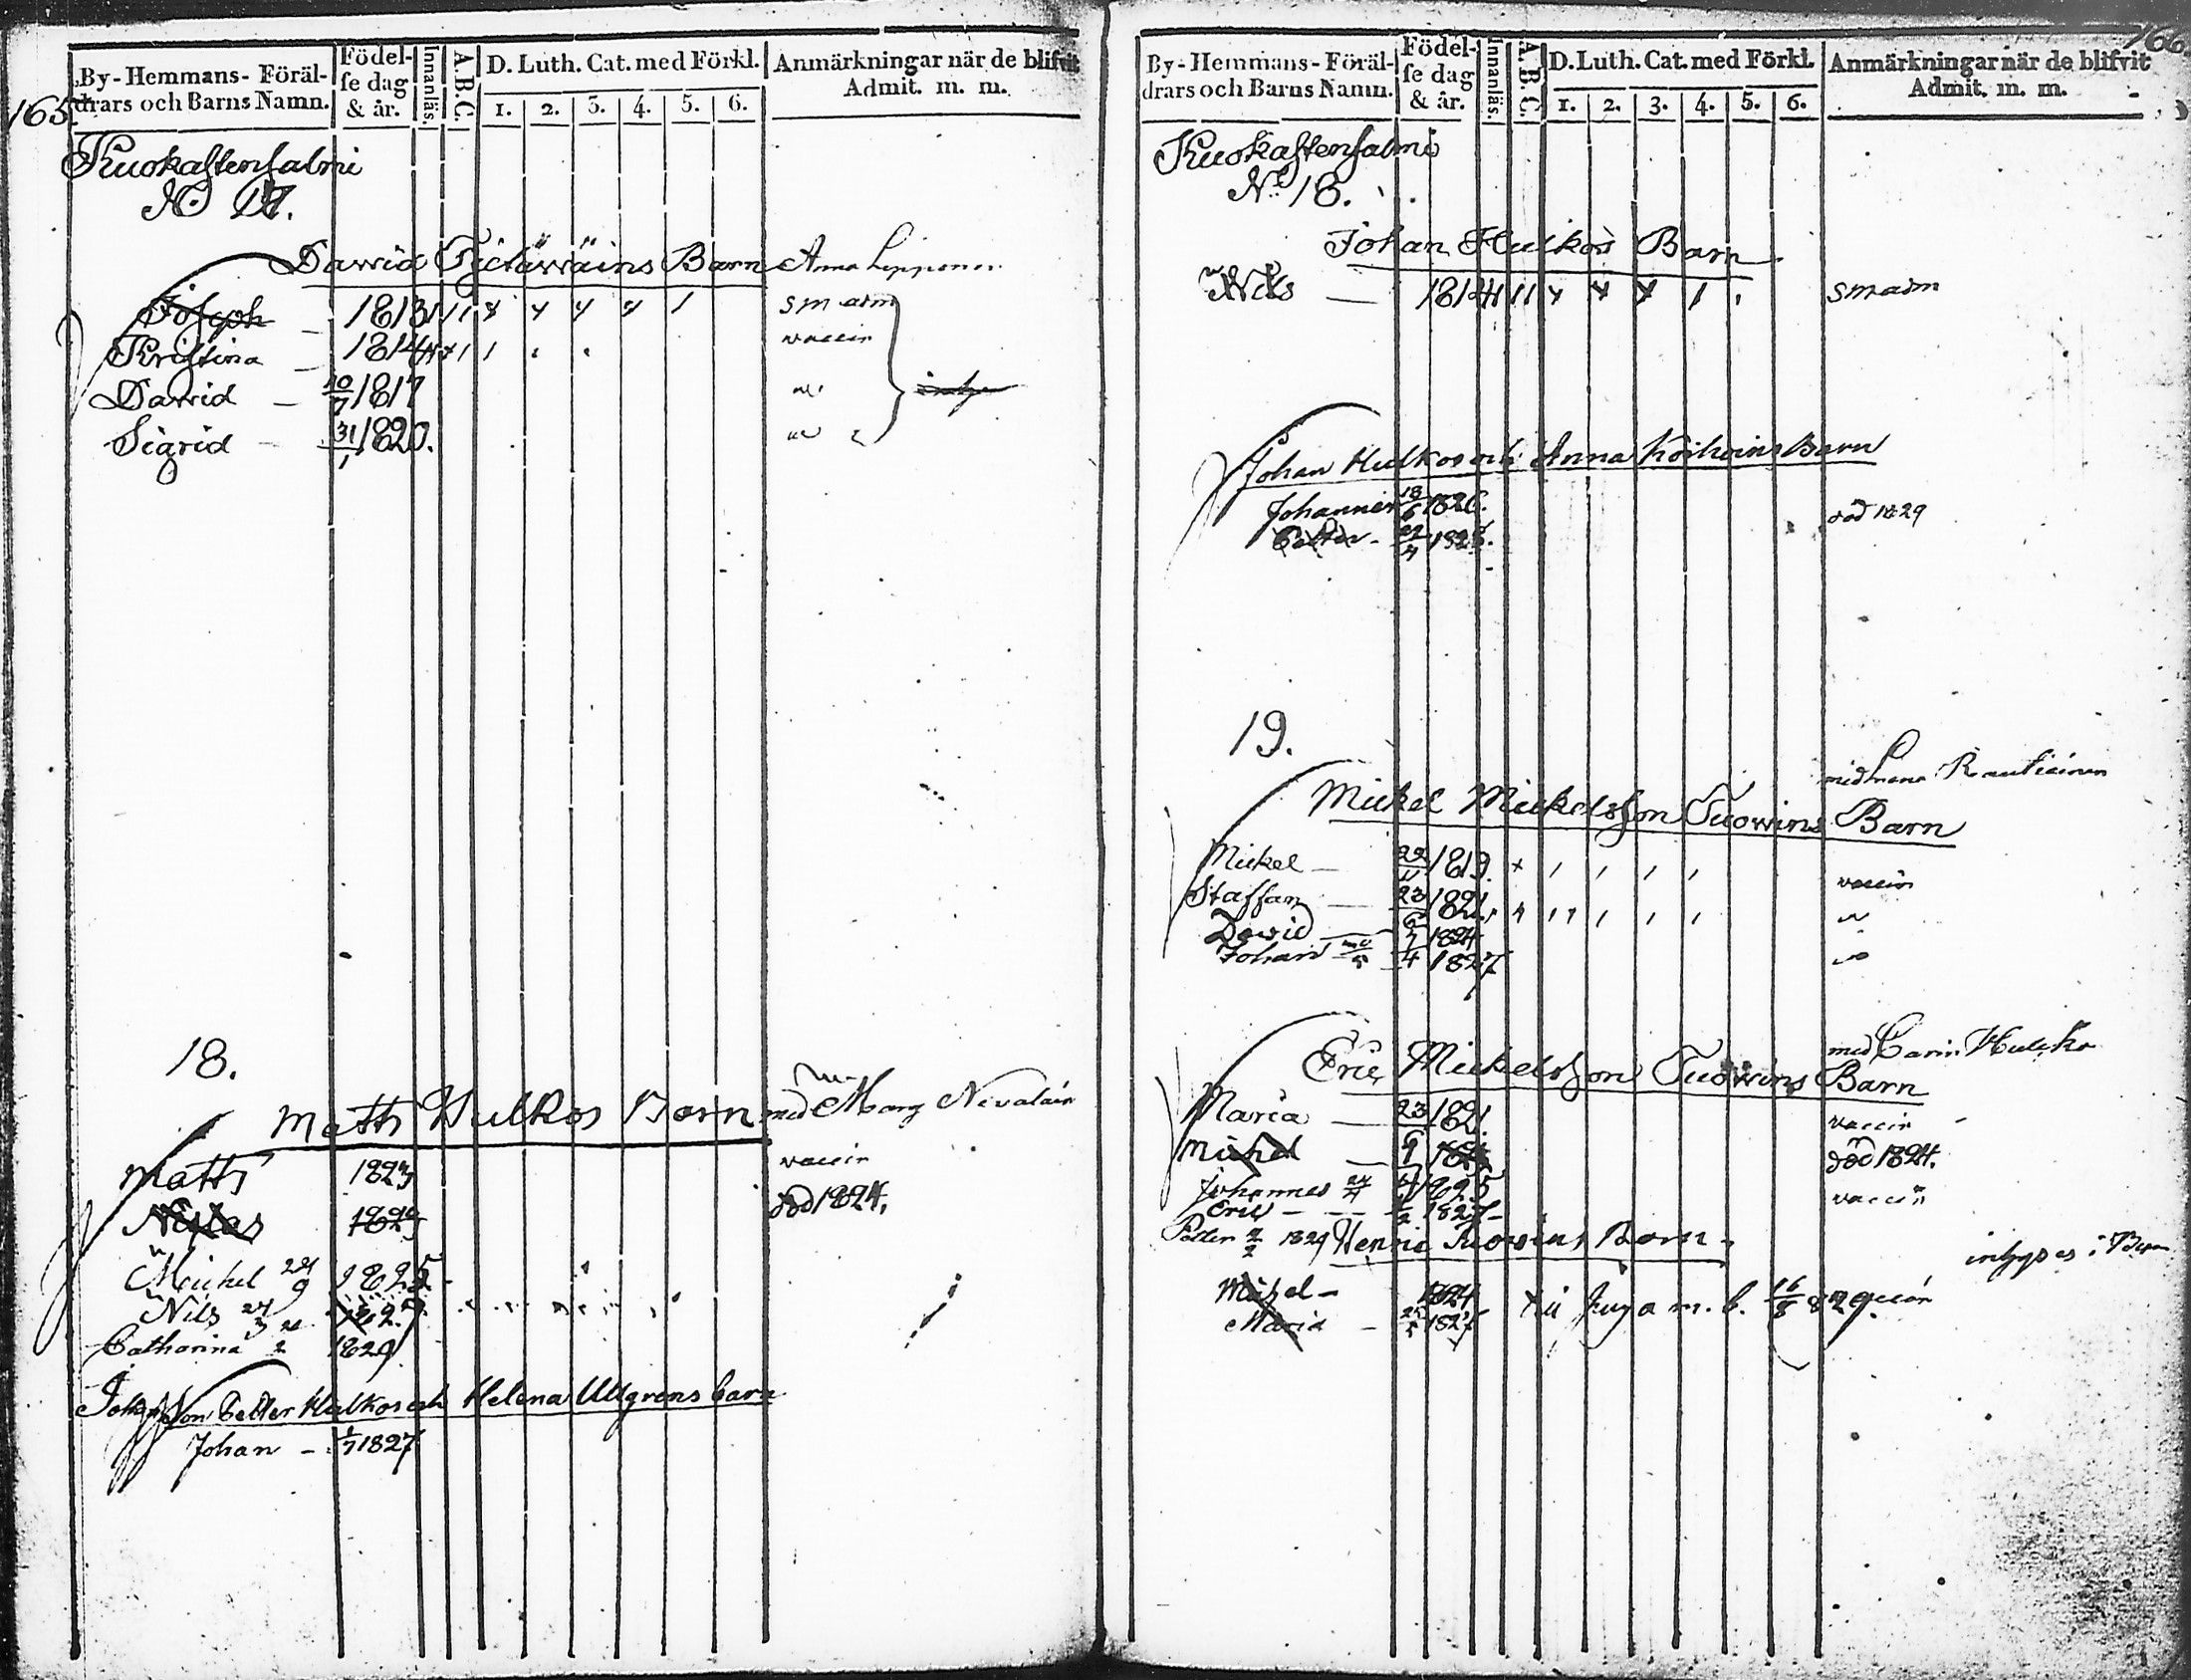 165.
By-Hemmans-Föräl-
drars och Barns Namn.
Födel-
se dag
& år.
Innanläs.
A.B.C.
D. Luth. Cat. med Förkl.
1. 2. 3. 4. 5. 6.
Anmärkningar när de blifvit
Admit. m. m.
Kuokastensalmi
No 17.
Dawid Barn Anna Lipponen
Joseph 1813 sm adm
Kristina 1814 vaccin
Dawid 10/7 1817
Sigrid 31/1 1820.
18.
Matts Hulkos Barn med Marg Nevalain
Matts 1823 vaccin
Niklas 1823 död 1824.
Mickel 29/9 1825
Nils 24/3
Catharina 1829
Johan Petter Hulkos och Helena Ullgrens barn
Johan 1/7 1827
166.
By-Hemmans-Föräl-
drars och Barns Namn.
Födel-
se dag
& år.
Innanläs.
A.B.C.
D. Luth. Cat. med Förkl.
1. 2. 3. 4. 5. 6.
Anmärkningar när de blifvit
Admit. m. m.
Kuokastensalmi
No 18.
Johan Hulkos Barn
Nils 1814 sm adm
Johan Hulkos och Anna Barn
Johannes 18/6 1826. död 1829
Petter 1828.
19.
med Rautiainen
Mickel Mickelsson Tuowins Barn
Mickel 22/11 1819. vaccin
Staffan 23 1821.
Dawid 1824
Johan 1827
med Carin Hulcko
Eric Mickelsson Tuowins Barn
Maria 23 1821. vaccin
Mickel död 1824.
Johannes 1825 vaccin
Eric 1827
Petter 2/2 1829
Henric Tuowins Barn
Mickel 1824
Maria 25/5 1827 till Juga m. b. 16/8 829.